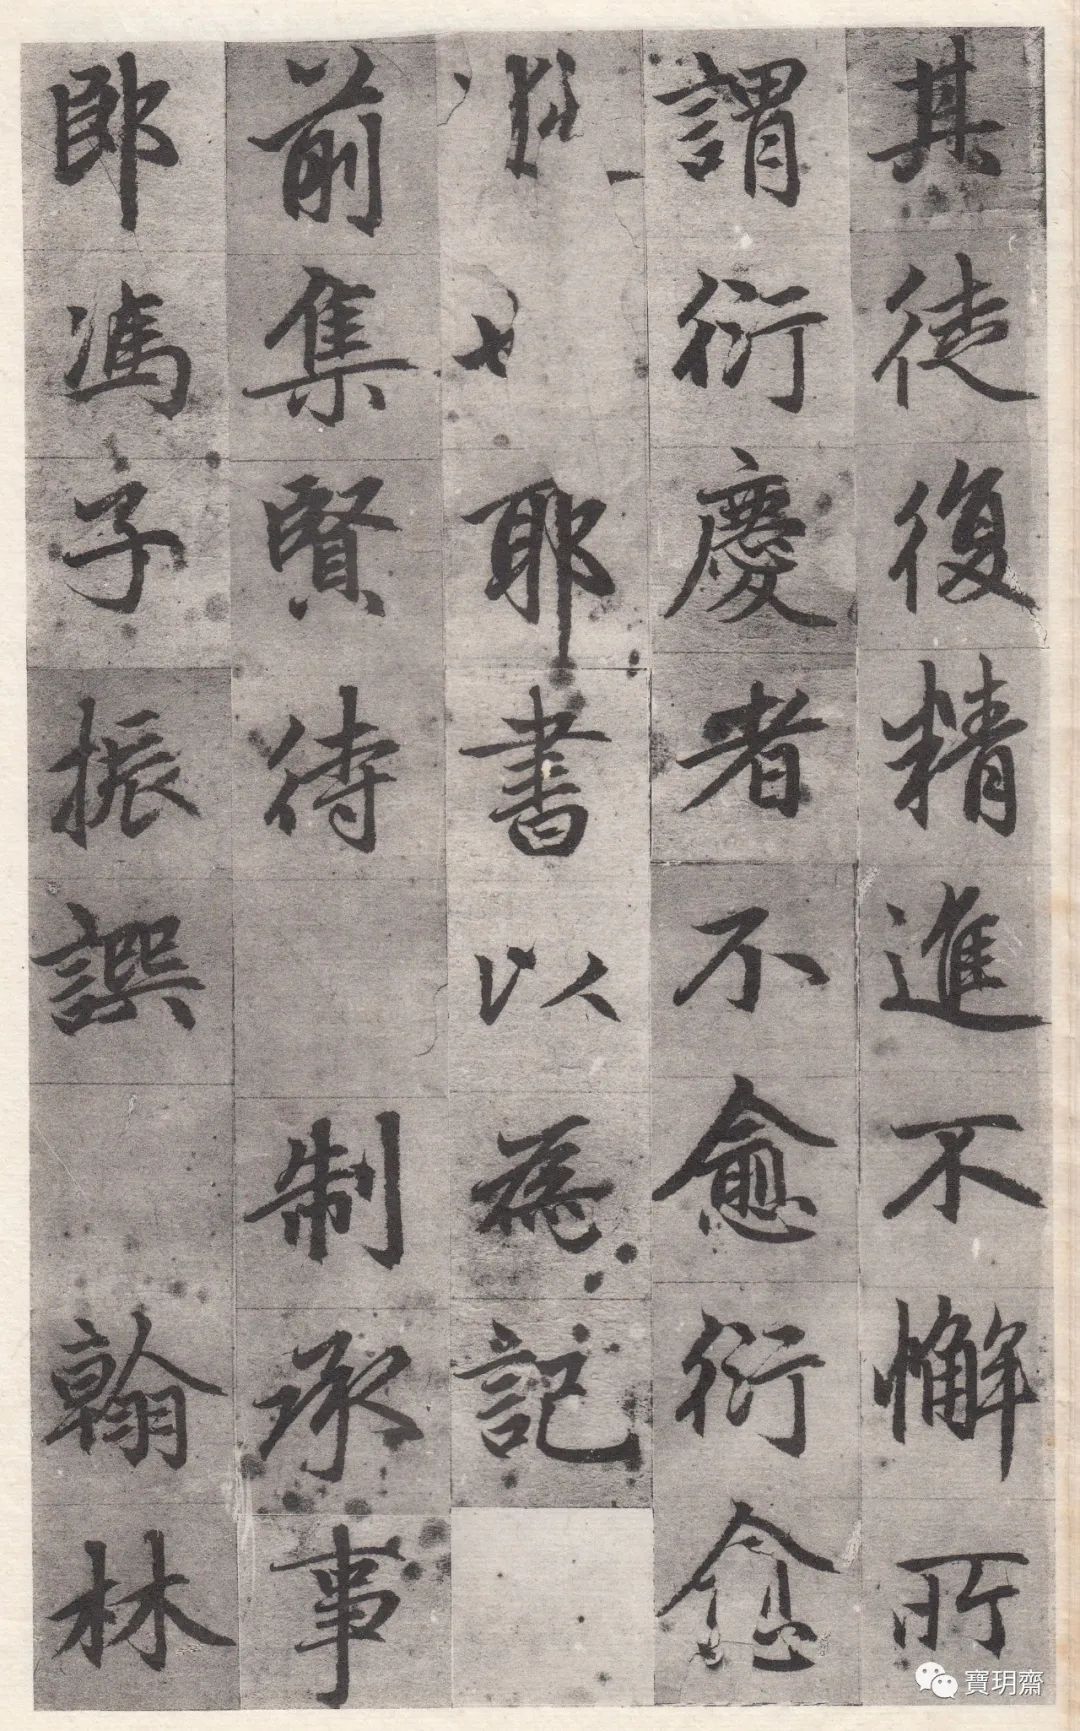 其徒復精進不懈所
謂衍慶者不愈衍愈
耶書以為記
前集賢待制承事
郎馮子振譔翰林
寶玥齋